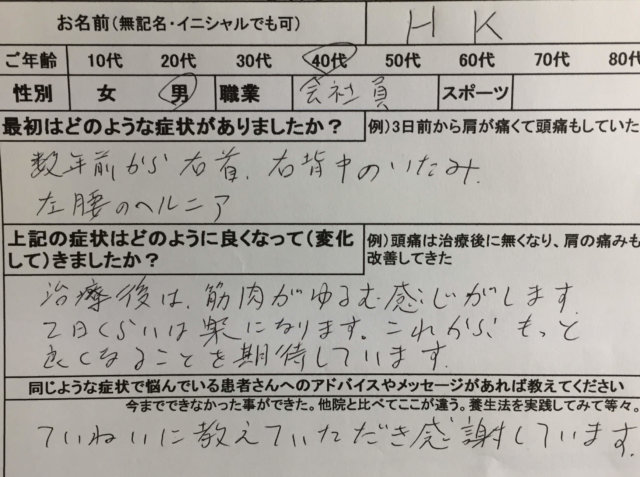 お名前(無記名・イニシャルでも可) H K
ご年齢 10代 20代 30代 40代 50代 60代 70代 80代
性別 女 男 職業 会社員 スポーツ
最初はどのような症状がありましたか? 例)3日前から肩が痛くて頭痛もしていた
数年前から右首、右背中のいたみ
左腰のヘルニア
上記の症状はどのように良くなって(変化 例)頭痛は治療後に無くなり、肩の痛みも
して)きましたか? 改善してきた
治療後は、筋肉がゆるむ感じがします。
2日くらいは楽になります。これから、もっと
良くなることを期待しています。
同じような症状で悩んでいる患者さんへのアドバイスやメッセージがあれば教えてください
今までできなかった事ができた。他院と比べてここが違う。養生法を実践してみて等々。
ていねいに教えていただき感謝しています。